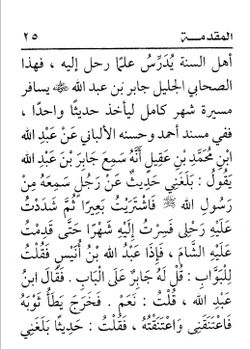 المقدمـــة
٢٥
أهل السنة يُدَرِّسُ علمًا رحل إليه ، فهذا
الصحابي الجليل جابر بن عبد الله ﷺ يسافر
مسيرة شهر كامل ليأخذ حديثًا واحدًا ،
ففي مسند أحمد وحسنه الألباني عَنْ عَبْدِ اللهِ
ابْنِ مُحَمَّدِ بْنِ عَقِيلٍ أَنَّهُ سَمِعَ جَابِرَ بْنَ عَبْدِ اللهِ
يَقُولُ : بَلَغَنِي حَدِيثٌ عَنْ رَجُلٍ سَمِعَهُ مِنْ
رَسُولِ اللهِ ﷺ فَاشْتَرَيْتُ بَعِيرًا ثُمَّ شَدَدْتُ
عَلَيْهِ رَحْلِي فَسِرْتُ إِلَيْهِ شَهْرًا حَتَّى قَدِمْتُ
عَلَيْهِ الشَّامَ ، فَإِذَا عَبْدُ اللهِ بْنُ أُنَيْسٍ فَقُلْتُ
لِلْبَوَّابِ : قُلْ لَهُ جَابِرٌ عَلَى الْبَابِ . فَقَالَ ابْنُ
عَبْدِ اللهِ ، قُلْتُ : نَعَمْ . فَخَرَجَ يَطَأُ ثَوْبَهُ
فَاعْتَنَقَنِي وَاعْتَنَقْتُهُ ، فَقُلْتُ : حَدِيثًا بَلَغَنِي